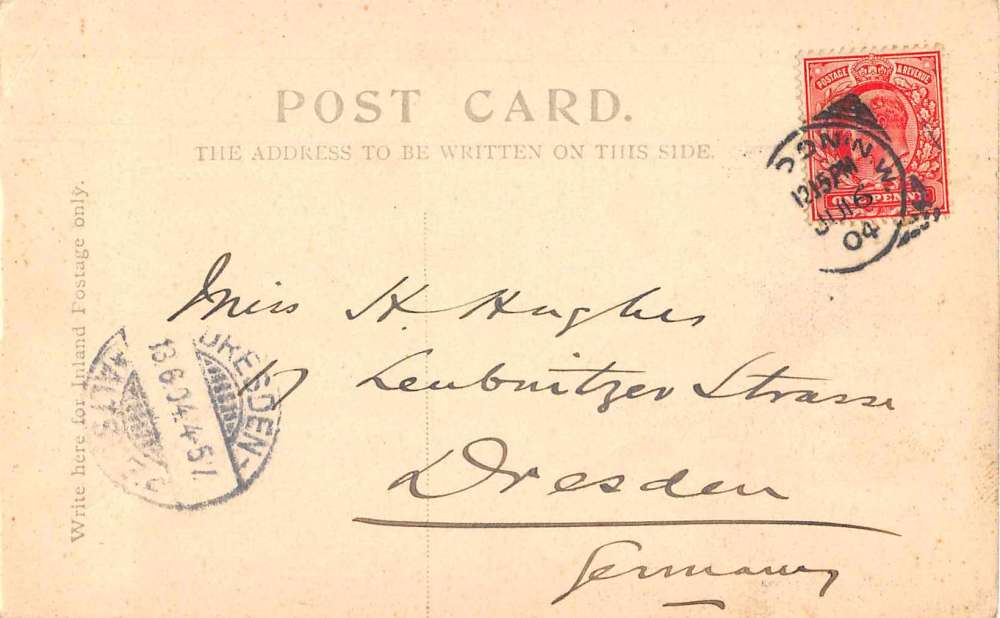 POST CARD.
THE ADDRESS TO BE WRITTEN ON THIS SIDE.
POSTAGE & REVENUE
ONE PENNY
LONDON.N.W.
12.15PM
JU 16
04
Write here for Inland Postage only.
Miss H. Hughes
17 Leubnitzer Strasse
Dresden
Germany
DRESDEN-
ALTST.
18.6.04.4-5